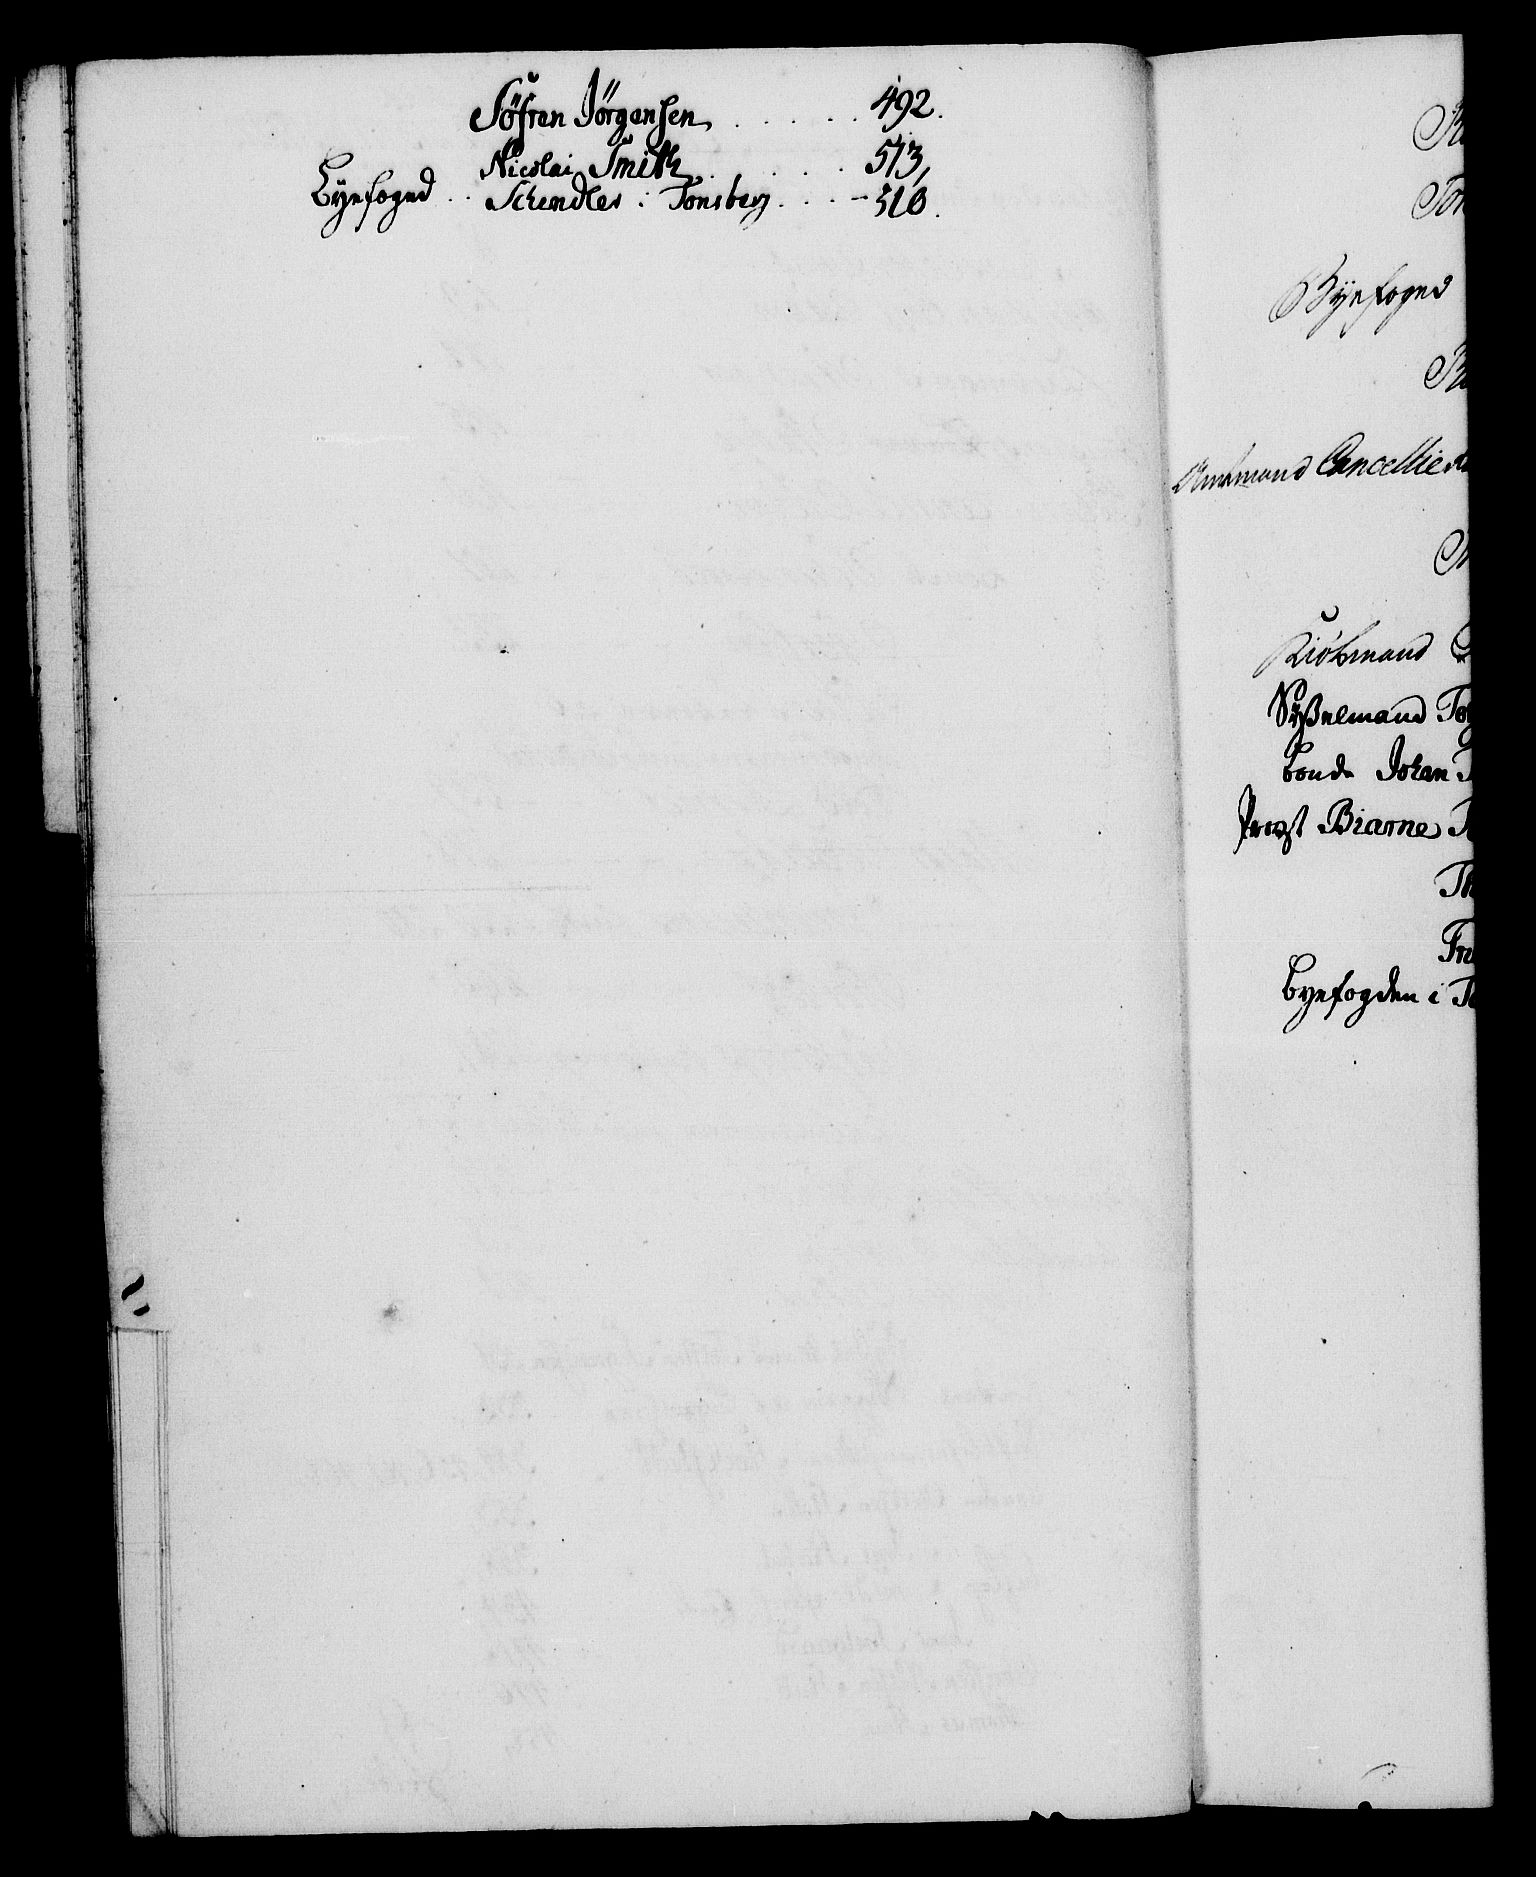 Söfren Jörgensen . . . . . 492.
Nicolai Smith . . . . . 513,
Byefoged . . Schendler i Tonsberg . . . . 510.
Byefoged
Amtmand Cancellie
Kiøbmand
Sysselmand
bonde Johan
Provst Biarne
Th
Fru
byefogden i